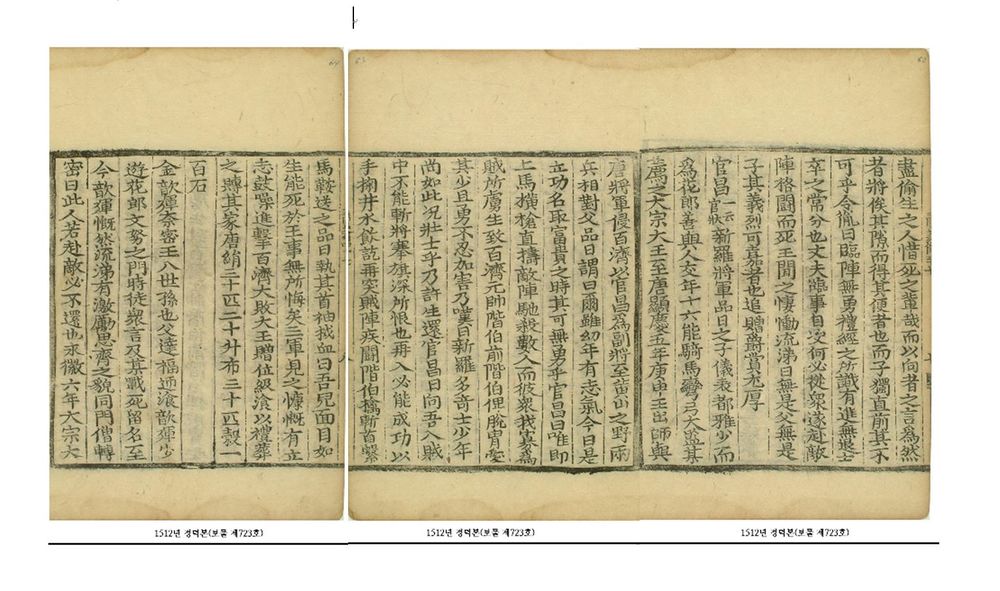 盡偷生之人惜死之輩哉而以向者之言爲然
者將俟其隙而得其便者也而子獨直前其不
可乎令胤曰臨陣無勇禮經之所識有進無退士
卒之常分也丈夫臨事自决何必從衆遂赴敵
陣格鬪而死王聞之悽慟流涕曰無是父無是
子其義烈可嘉者也追贈爵賞尤厚
官昌一云官狀新羅將軍品日之子儀表都雅少而
爲花郎善與人交年十六能騎馬彎弓大監某
薦之大宗大王至唐顯慶五年庚申王出師與
唐將軍侵百濟以官昌爲副將至黃山之野兩
兵相對父品日謂曰爾雖幼年有志氣今日是
立功名取富貴之時其可無勇乎官昌曰唯即
上馬横槍直擣敵陣馳殺數人而彼衆我寡爲
賊所虜生致百濟元帥階伯前階伯俾脫冑愛
其少且勇不忍加害乃嘆曰新羅多奇士少年
尚如此况壯士乎乃許生還官昌曰向吾入賊
中不能斬將搴旗深所恨也再入必能成功以
手掬井水飮訖再突賊陣疾鬪階伯擒斬首繫
馬鞍送之品日執其首袖拭血曰吾兒面目如
生能死於王事無所悔矣三軍見之慷慨有立
志鼓噪進擊百濟大敗大王贈位級飡以禮葬
之賻其家唐絹三十匹二十升布三十匹穀一
百石
金歆運奈密王八世孫也父達福迊飡歆運少
遊花郎文努之門時徒衆言及某戰死留名至
今歆運慨然流涕有激勵思齊之貌同門僧轉
密曰此人若赴敵必不還也永徽六年大宗大
1512년 정덕본(보물 제723호)
1512년 정덕본(보물 제723호)
1512년 정덕본(보물 제723호)